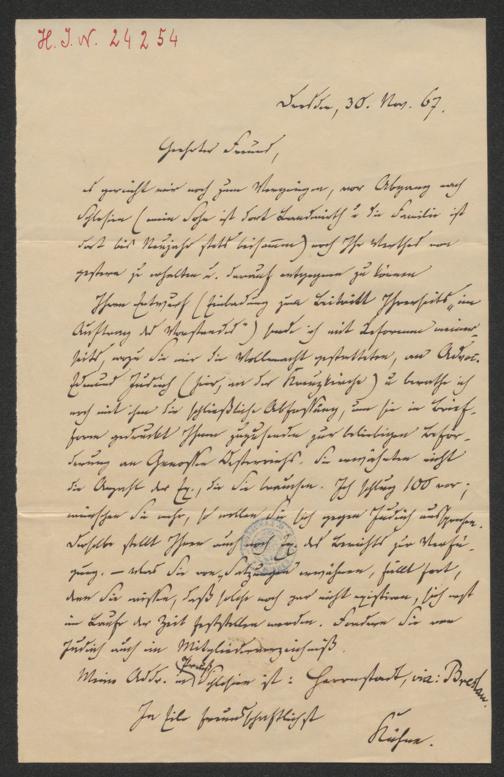 H. I. N. 24254
Dresden, 30. Nov. 67.
Geehrter Freund,
es gereicht mir noch zum Vergnügen, vor Abgang nach
Schlesien (mein Sohn ist dort Landwirth u die Familie ist
dort bis Neujahr stets beisammen) noch Ihr Werthes von
gestern zu erhalten u. darauf entgegnen zu können
Ihren Entwurf (Einladung zum Beitritt Ihrerseits „im
Auftrag des Vorstandes“) sende ich mit
seits, wozu Sie mir die Vollmacht gestatteten, an Advoc.
Edmund Judich (hier, an der Kreuzkirche) u berathe ich
noch mit ihm die schließliche Abfassung, um sie in Brief-
form gedruckt Ihnen zuzusenden zur beliebigen Beför-
derung an Genossen Oesterreichs. Sie erwähnten nicht
die Anzahl der Ex., die Sie brauchen. Ich schlug 100 vor;
wünschen Sie mehr, so wollen Sie sich gegen Judich aussprechen.
Derselbe stellt Ihnen auch noch Ex. des Berichts zur Verfü-
gung. — Was Sie von Satzungen erwähnen, fällt fort,
denn Sie wissen, daß solche noch gar nicht existiren, sich erst
im Laufe der Zeit feststellen werden. Fordern Sie von
Judich auch ein Mitgliederverzeichniß.
Meine Addr. in Preuß. Schlesien ist: Herrnstadt, via: Breslau.
In Eile freundschaftlichst
Kühne.